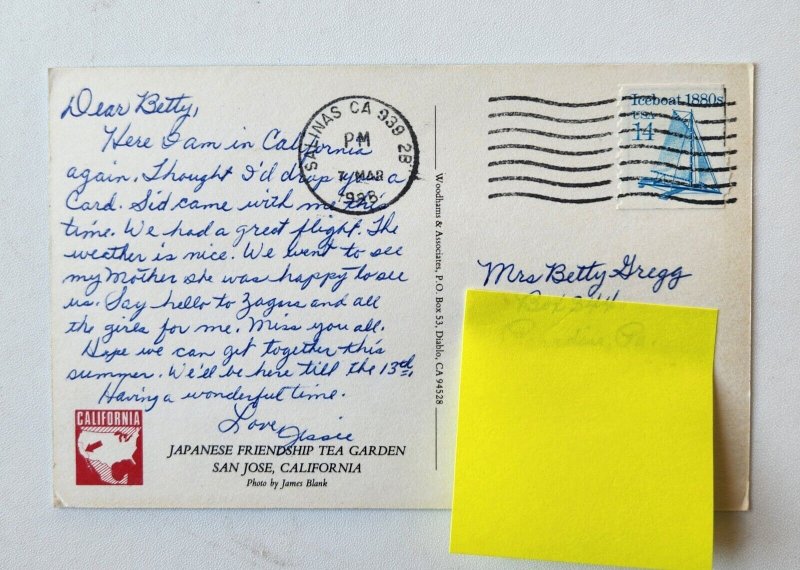 Dear Betty,
Here I am in California
again. Thought I'd drop you a
Card. Sid came with me this
time. We had a great flight. The
weather is nice. We went to see
my Mother she was happy to see
us. Say hello to Zagus and all
the girls for me. Miss you all.
Hope we can get together this
summer. We'll be here till the 13th.
Having a wonderful time.
Love,
Jessie
CALIFORNIA
JAPANESE FRIENDSHIP TEA GARDEN
SAN JOSE, CALIFORNIA
Photo by James Blank
SALINAS CA 939 2B
PM
7 MAR
1988
Woodhams & Associates, P.O. Box 53, Diablo, CA 94528
Iceboat 1880s
USA
14
Mrs Betty Gregg